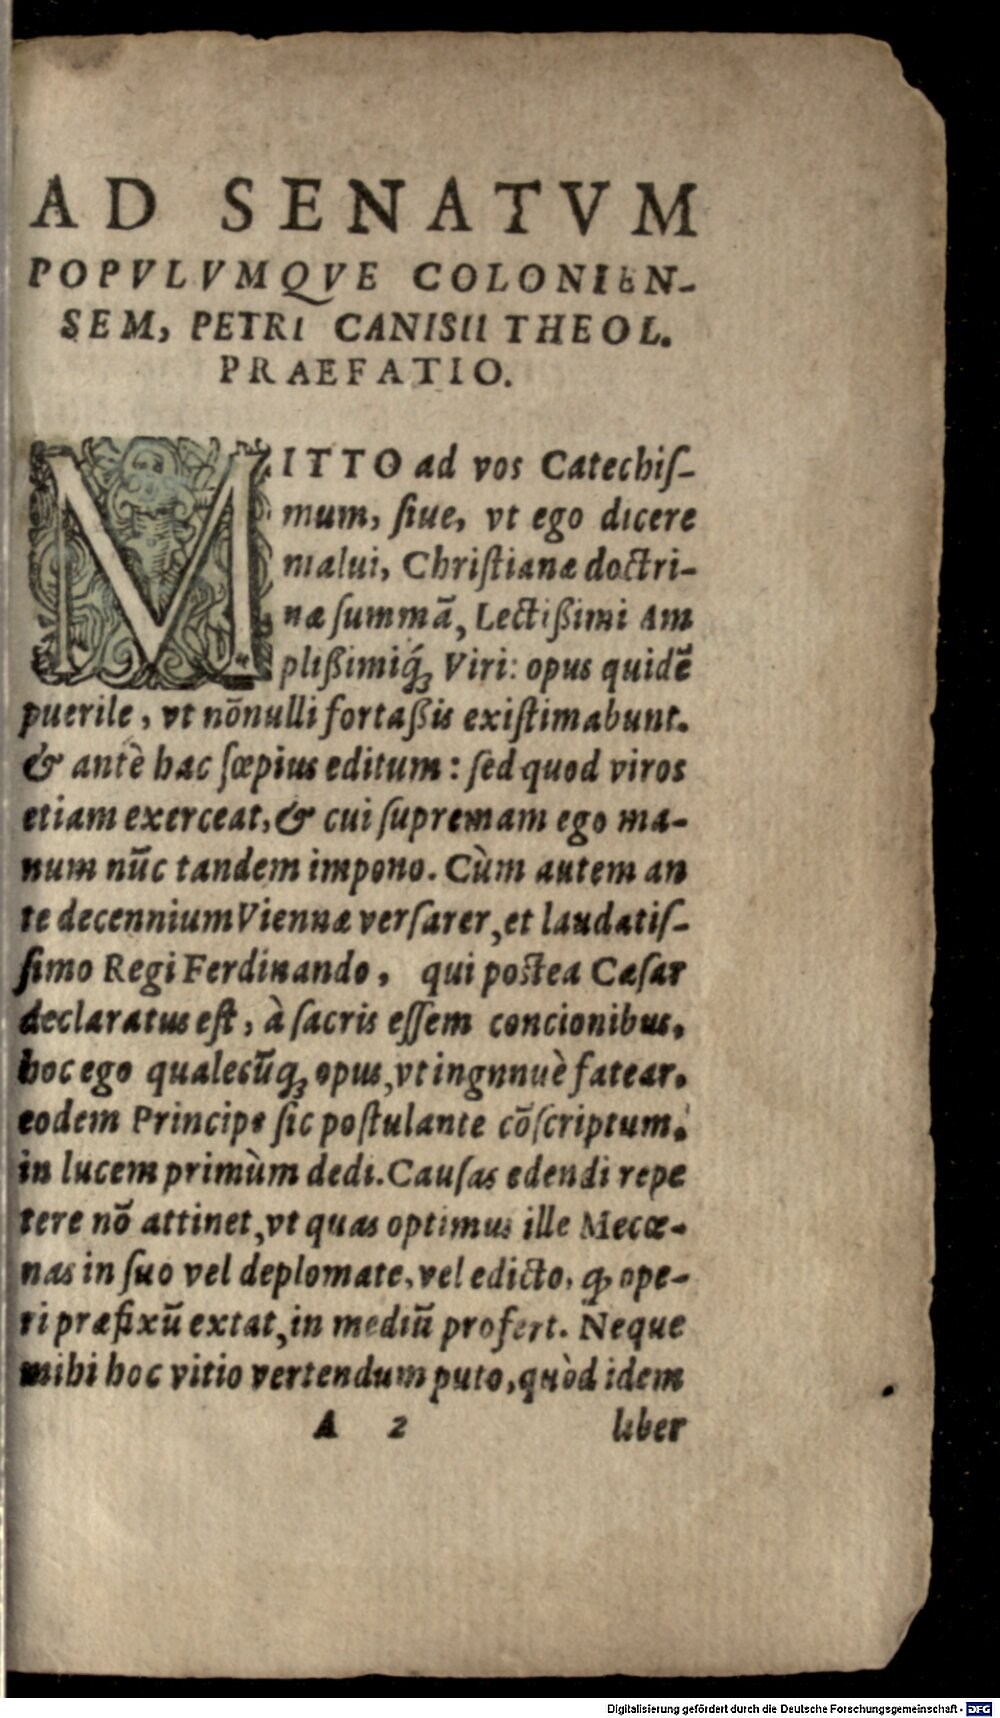 AD SENATVM
POPVLVMQVE COLONIEN-
SEM, PETRI CANISII THEOL.
PRAEFATIO.
MITTO ad vos Catechiſ-
mum, ſiue, vt ego dicere
malui, Chriſtianæ doctri-
næ ſummā, Lectißimi Am
plißimiq́ꝫ Viri: opus quidē
puerile, vt nōnulli fortaßis exiſtimabunt.
& antè hac ſœpius editum: ſed quod viros
etiam exerceat, & cui ſupremam ego ma-
num nūc tandem impono. Cùm autem an
te decennium Viennæ verſarer, et laudatiſ-
ſimo Regi Ferdinando, qui postea Cæſar
declaratus eſt, à ſacris eſſem concionibus,
hoc ego qualecūqꝫ opus, vt ingnnuè fatear.
eodem Principe ſic poſtulante cōſcriptum.
in lucem primùm dedi. Cauſas edendi repe
tere nō attinet, vt quas optimus ille Mecœ-
nas in ſuo vel deplomate, vel edicto, ꝙ ope-
ri præfixū extat, in mediū profert. Neque
mihi hoc vitio vertendum puto, quòd idem
A 2 liber
Digitalisierung gefördert durch die Deutsche Forschungsgemeinschaft - DFG